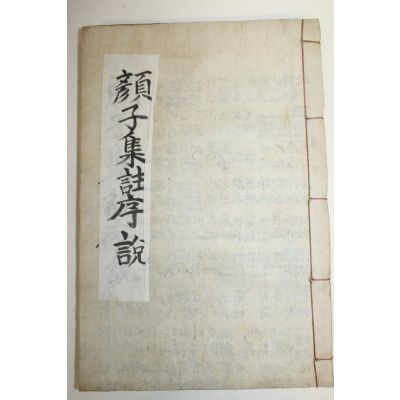 顔子集註序說